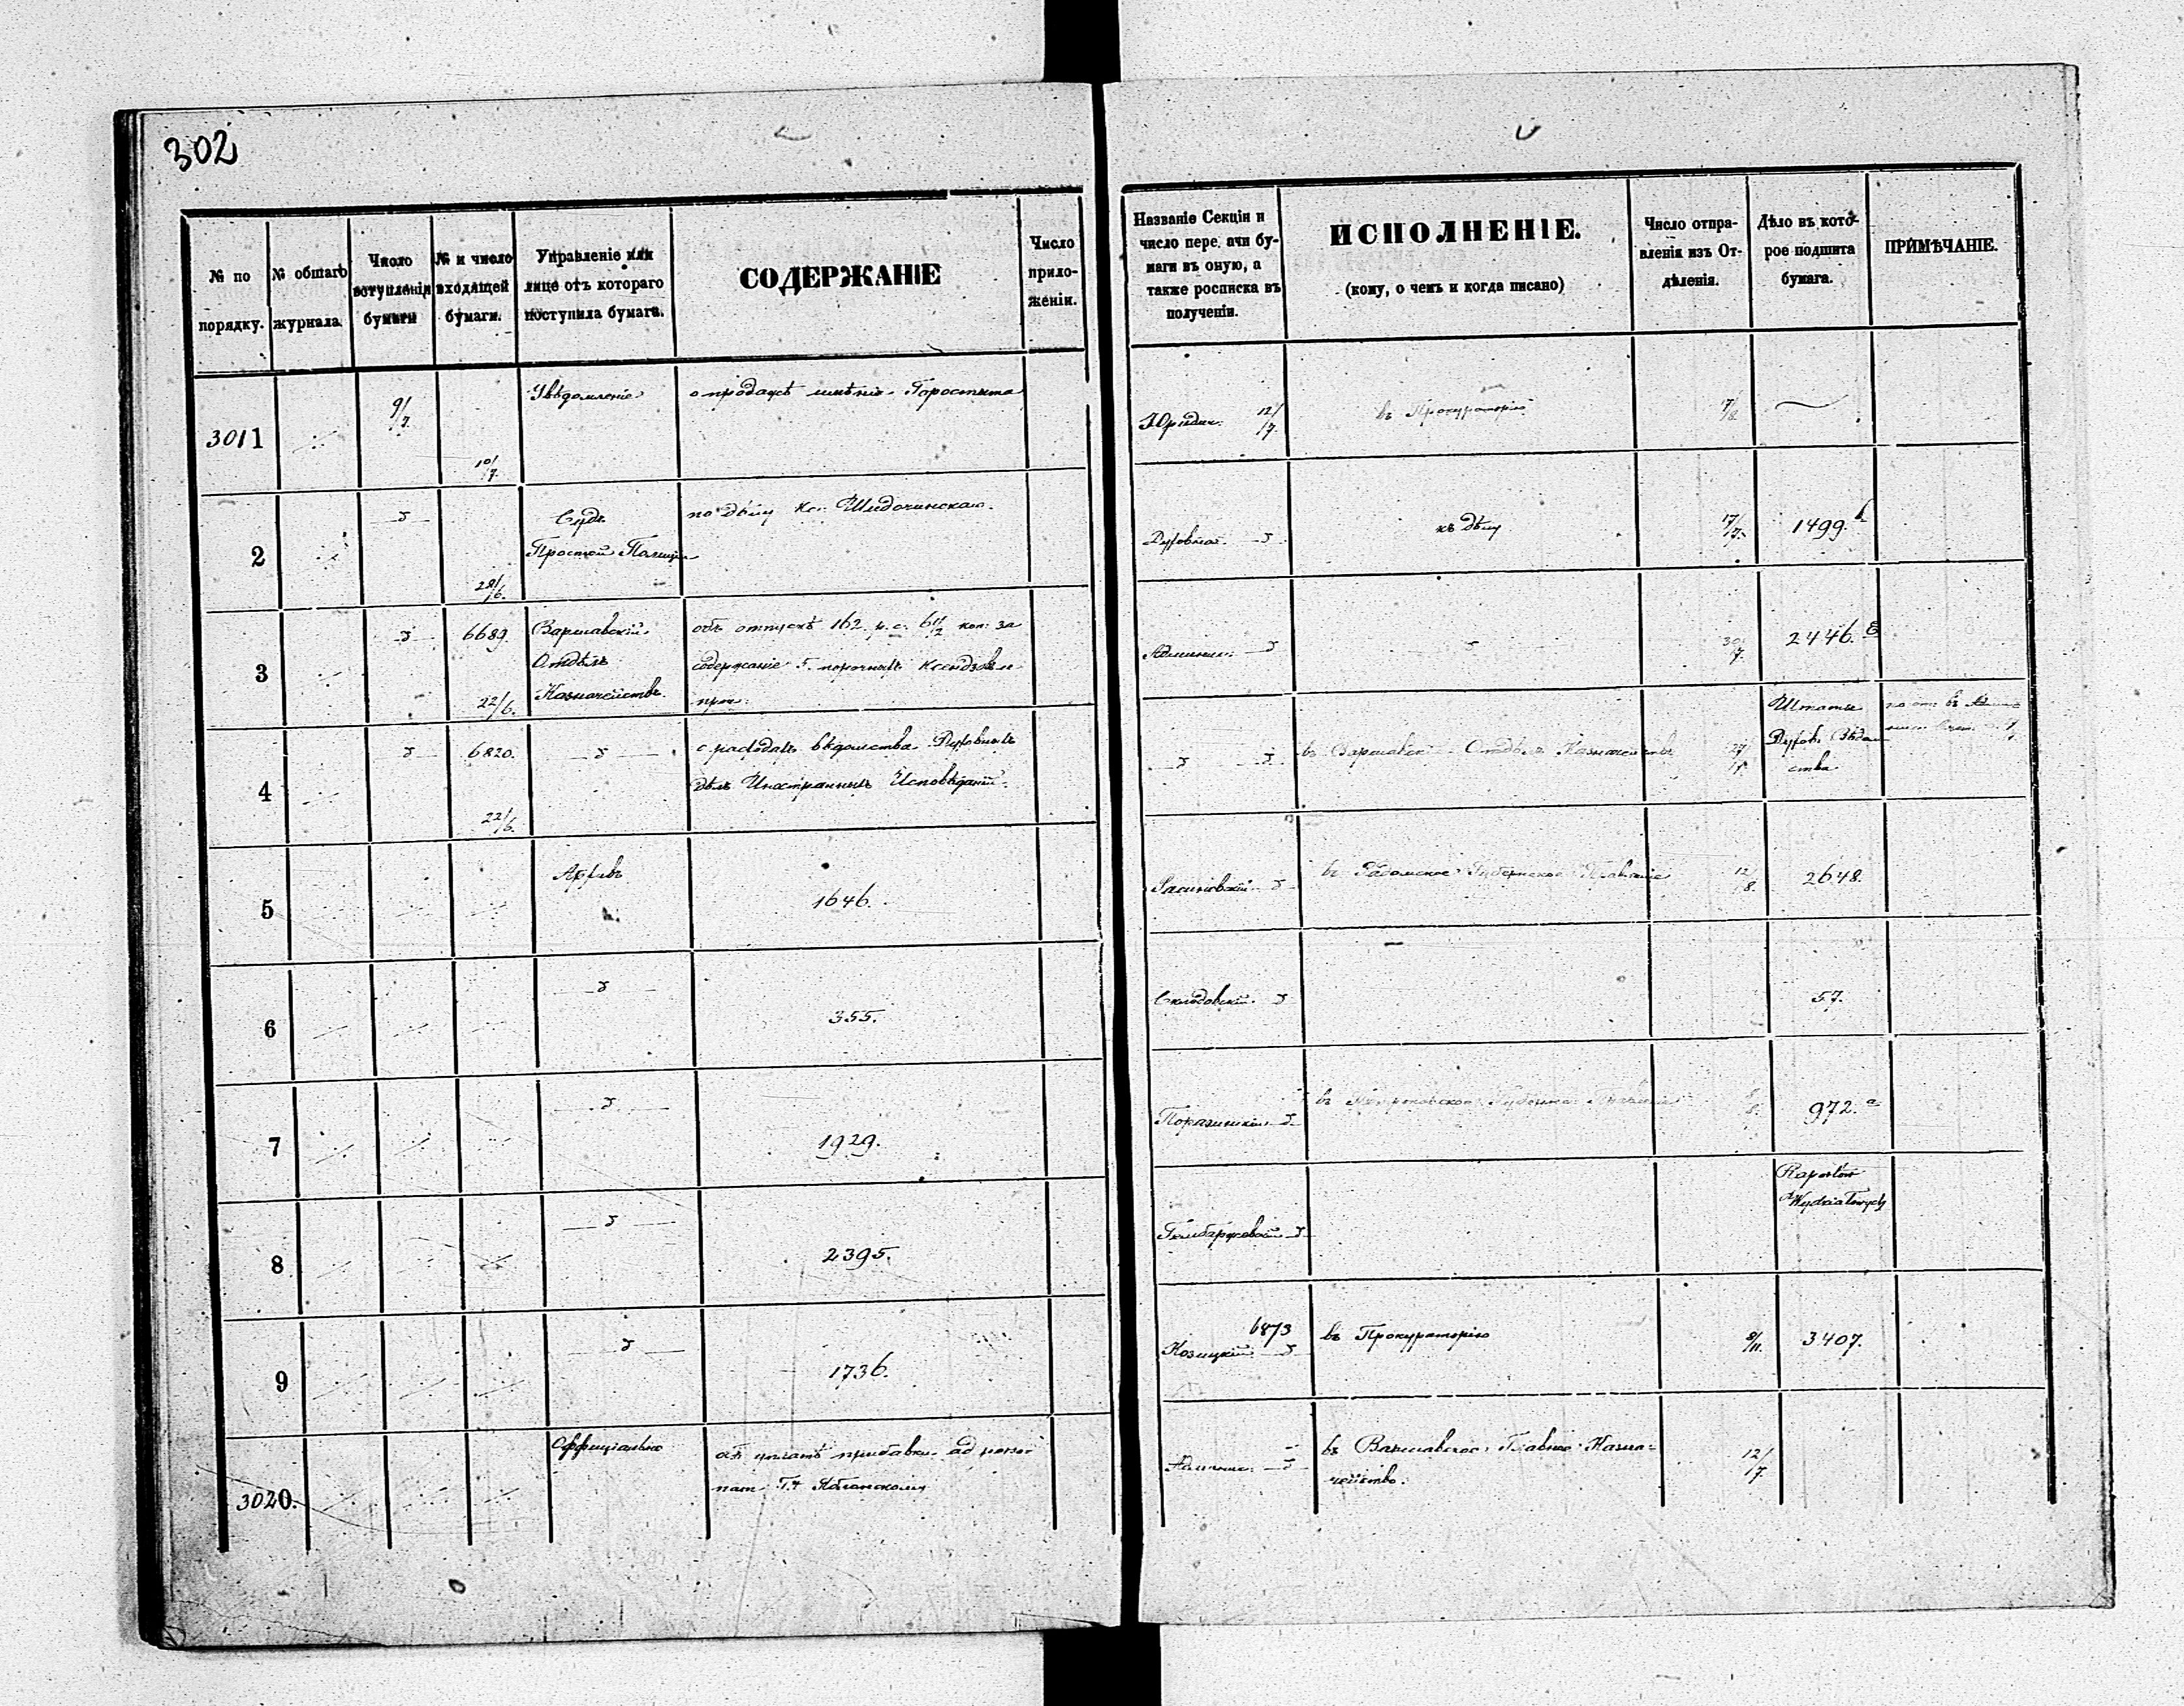 302
№ по порядку.
№ общаго журнала.
Число вступленія бумаги
№ и число входящей бумаги.
Управленіе или лице отъ котораго поступила бумага.
СОДЕРЖАНІЕ
Число приложеній.
Названіе Секціи и число передачи бумаги въ оную, а также росписка въ полученіи.
ИСПОЛНЕНІЕ.
(кому, о чемъ и когда писано)
Число отправленія изъ Отдѣленія.
Дѣло въ которое подшита бумага.
ПРИМѢЧАНІЕ.
3011 9/7. 10/7. Увѣдомленіе о продажѣ имѣнія Горостыта Юридич. 12/7. въ Прокураторію 17/8
2 Судъ Простой Полиціи 28/6. по дѣлу Кс. Духовная къ дѣлу 17/7. 1499. b
3 6689 22/6. Варшавскій Отдѣлъ Казначействъ объ отпускѣ 162 р. с. 61 1/2 коп. за содержаніе 5. порочныхъ Ксендзовъ Админис. 30/7. 2446. E
4 6820. 22/6. о расходахъ вѣдомства Духовныхъ дѣлъ Иностранныхъ Исповѣданій. въ Варшавскій Отдѣлъ Казначействъ 27/7. Штаты Духов. Вѣдомства
5 Архивъ 1646. въ Радомское Губернское Правленіе 12/8. 2648.
6 355. Склодовскій 57.
7 1929. въ Губернское Правленіе 972. a
8 2395. Raportów Wydziałowych
9 1736. 6873 Козицкій въ Прокураторію 8/11. 3407.
3020. Оффиціально объ уплатѣ прибавки Админис. въ Варшавское Главное Казначейство. 12/7.